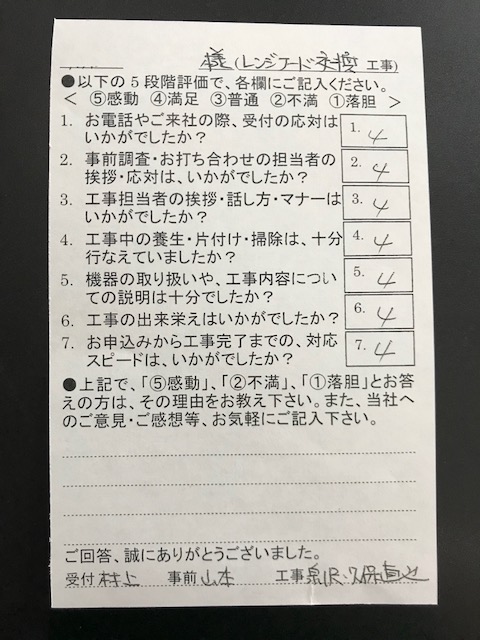 様(レンジフード交換 工事)
●以下の5段階評価で、各欄にご記入ください。
< ⑤感動 ④満足 ③普通 ②不満 ①落胆 >
1. お電話やご来社の際、受付の応対は
いかがでしたか?
1. 4
2. 事前調査・お打ち合わせの担当者の
挨拶・応対は、いかがでしたか?
2. 4
3. 工事担当者の挨拶・話し方・マナーは
いかがでしたか?
3. 4
4. 工事中の養生・片付け・掃除は、十分
行なえていましたか?
4. 4
5. 機器の取り扱いや、工事内容につい
ての説明は十分でしたか?
5. 4
6. 工事の出来栄えはいかがでしたか?
6. 4
7. お申込みから工事完了までの、対応
スピードは、いかがでしたか?
7. 4
●上記で、「⑤感動」、「②不満」、「①落胆」とお答
えの方は、その理由をお教え下さい。また、当社へ
のご意見・ご感想等、お気軽にご記入下さい。
ご回答、誠にありがとうございました。
受付 村上 事前 山本 工事 泉沢・久保直也